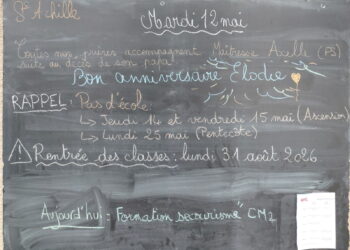 St Achille
Mardi 12 mai
Toutes nos prières accompagnent Maîtresse Axelle (PS)
suite au décès de son papa
Bon anniversaire Elodie
RAPPEL : Pas d'école :
↳ Jeudi 14 et vendredi 15 mai (Ascension)
↳ Lundi 25 mai (Pentecôte)
⚠ Rentrée des classes : lundi 31 août 2026
Aujourd'hui : Formation secourisme CM2